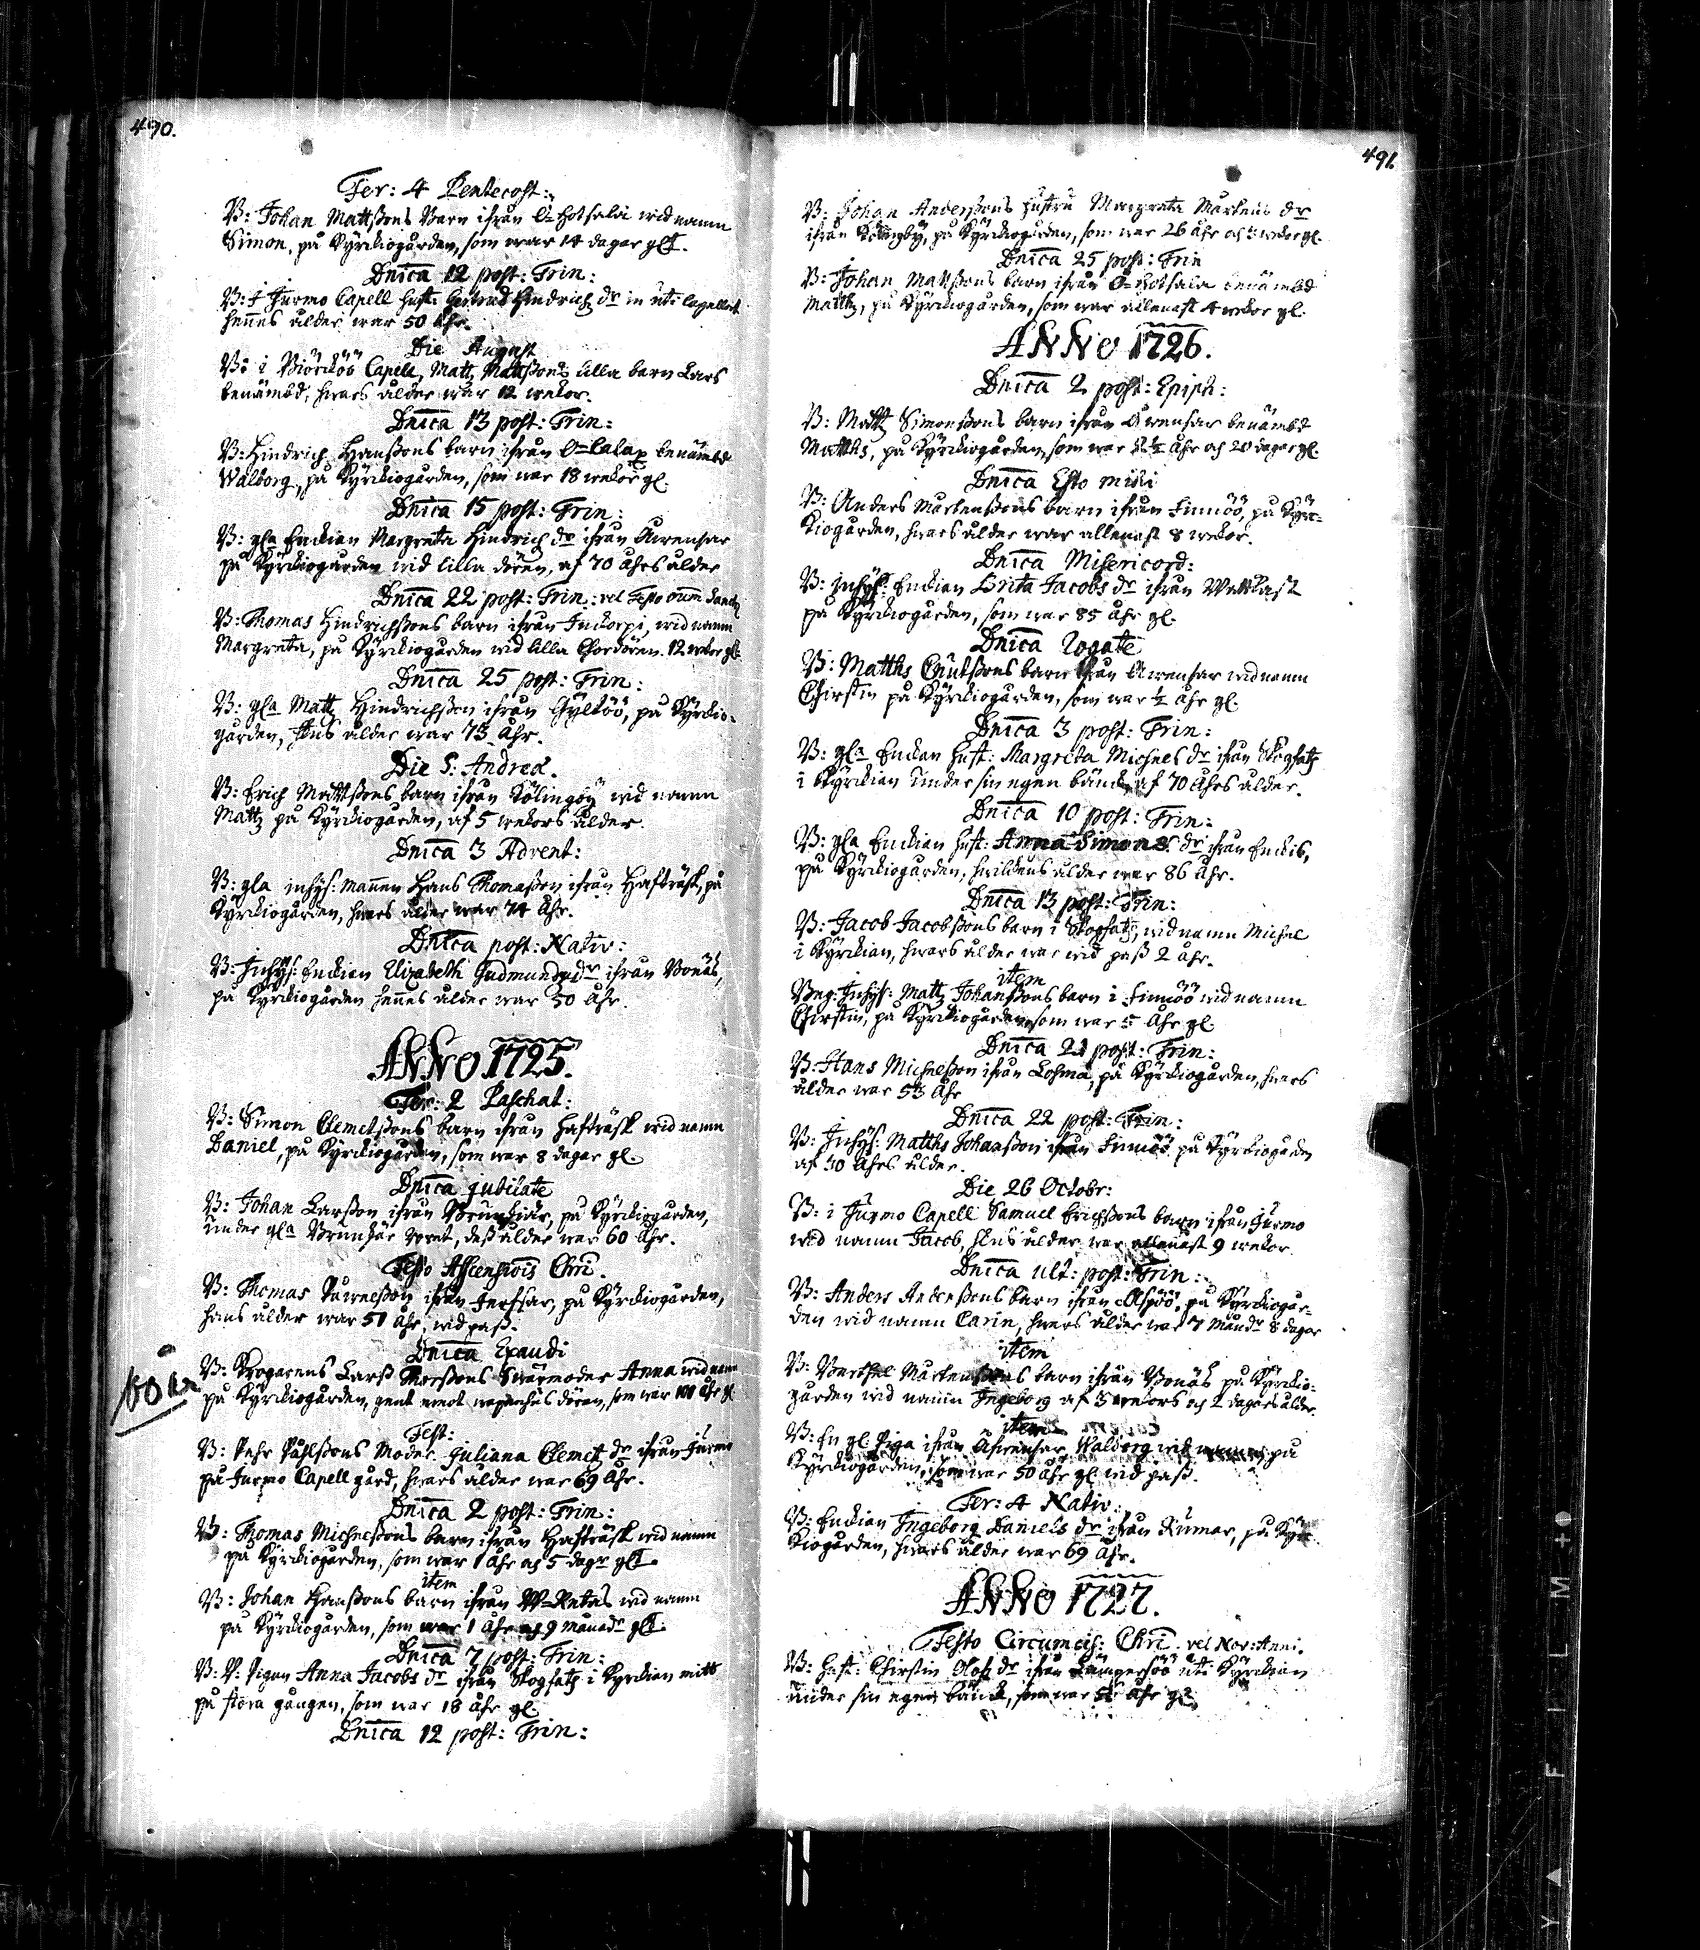 490.
Fer: 4 Pentecost:
B: Johan Mattßons Barn ifrån O=hotsala wid namn
Simon, på Kyrkiogården, som war 14 dagar glt.
Dnica 12 post: Trin:
B: i Jurmo Capell Hust: Gertrud Hindrichs dr in uti Capellet
hennes ålder war 50 åhr.
Die August
B: i Biörköö Capell, Matz Mattßons lilla barn Lars
benämbd, hwars ålder war 12 wekor.
Dnica 13 post: Trin:
B: Hindrich Hanßons barn ifrån O=Lalax benämbd
Walborg, på Kyrkiogården, som war 18 wekor gl.
Dnica 15 post: Trin:
B: gla Enckian Margreta Hindrichs dr ifrån Åwensar
på Kyrkiogården wid lilla dören, af 70 åhrs ålder
Dnica 22 post: Trin: vel Festo oum Sanct
B: Thomas Hindrichßons barn ifrån Jnkorpi, wid namn
Margreta, på Kyrkiogården wid lilla Chordören. 12 wekor gl:
Dnica 25 post: Trin:
B: gla Matz Hindrichsson ifrån Gyltöö, på Kyrkio-
gården, hans ålder war 73 Åhr.
Die S: Andreæ.
B: Erich Mattßons barn ifrån Kölingby wid namn
Matz på Kyrkiogården, af 5 wekors ålder.
Dnica 3 Advent:
B: gla inhys: Mannen Hans Thomaßon ifrån Hafträsk, på
Kyrkiogården, hwars ålder war 74 Åhr.
Dnica post: Nativ:
B: Jnhys: Enckian Elizabeth Gudmunds dr ifrån Bonäs,
på Kyrkiogården hennes ålder war 50 Åhr.
ANNO 1725.
Fer: 2 Paschat:
B: Simon Clemetßons barn ifrån Hafträsk wid namn
Daniel, på Kyrkiogården, som war 8 dagar gl.
Dnica jubilate
B: Johan Larßon ifrån Brunskiär, på Kyrkiogården,
under gla Brunskär, deß ålder war 60 Åhr.
Festo Ascensiois Chri.
B: Thomas ifrån Jerfsar, på Kyrkiogården,
hans ålder war 50 Åhr, wid paß.
Dnica Exaudi
B: Krogarens Larß Thorßons Swärmoder Anna wid namn
på Kyrkiogården, gent emot wapenhus dören, som war 100 Åhr gl
100 år
Fest:
B: Pehr Påhlßons Moder Juliana Clemets dr ifrån Jurmo
på Jurmo Capell gård, hwars ålder war 69 Åhr.
Dnica 2 post: Trin:
B: Thomas Michelßons barn ifrån Hafträsk wid namn
på Kyrkiogården, som war 1 Åhr och 5 dagr glt.
item
B: Johan Hanßons barn ifrån W=Retais wid namn
på Kyrkiogården, som war 1 Åhr och 9 månadr glt.
Dnica 7 post: Trin:
B: P. Pigan Anna Jacobs dr ifrån Skogsatz i Kyrkian mitt
på stora gången, som war 18 åhr gl.
Dnica 12 post: Trin:
491.
B: Johan Anderßons hustru Margreta Mårtens dr
ifrån, på Kyrkiogården, som war 26 Åhr och wekor gl.
Dnica 25 post: Trin
B: Johan Mattßons barn ifrån O=hotsala benämbd
Matthz, på Kyrkiogården, som war allenast 4 wekor gl.
ANNO 1726.
Dnica 2 post: Epiph:
B: Matz Simonßons barn ifrån Åwensar benämbd
Matths, på Kyrkiogården, som war ½ Åhr och 20 dagar gl.
Dnica Esto mihi
B: Anders Mårtenßons barn ifrån Finnöö, på Kyr-
kiogården, hwars ålder war allenast 8 wekor.
Dnica Misericord:
B: Jnhys: Enckian Brita Jacobs dr ifrån Wattlast
på Kyrkiogården, som war 85 Åhr gl.
Dnica Rogate
B: Matths Cnutßons barn ifrån Åwensar wid namn
Chirstin på Kyrkiogården, som war ½ åhr gl.
Dnica 3 post: Trin:
B: gla Enckan Hust: Margreta Michels dr ifrån Skogsatz
i Kyrkian under sin egen bänck, af 70 Åhrs ålder.
Dnica 10 post: Trin:
B: gla Enckian Hust: Anna Simons dr ifrån Enckis,
på Kyrkiogården, hwilckens ålder war 86 Åhr.
Dnica 13 post: Trin:
B: Jacob Jacobßons barn i Skogsatz, wid namn Michel
i Kyrkian, hwars ålder war wid paß 2 åhr.
item
Bng: Jnhys: Matz Johanßons barn i Finnöö wid namn
Chirstin, på Kyrkiogården, som war 5 Åhr gl.
Dnica 21 post: Trin:
B: Hans Michelßon ifrån Lohma, på Kyrkiogården, hwars
ålder war 53 Åhr
Dnica 22 post: Trin:
B: Jnhys: Matths Johanßon ifrån Finnöö på Kyrkiogården
af 30 Åhrs ålder.
Die 26 Octobr:
B: i Jurmo Capell Samuel Erichßons barn ifrån Jurmo
wid namn Jacob, hans ålder war allenast 9 wekor
Dnica ult: post: Trin:
B: Anders Anderßons barn ifrån Aspöö, på Kyrkiogår-
den wid namn Carin, hwars ålder war 7 månadr 8 dagar
item
B: Barthel Mårtenßons barn ifrån Bonäs på Kyrkio-
gården wid namn Jngeborg af 3 wekors och 2 dagars ålder
item
B: En gl. Piga ifrån Åhwensar Walborg wid namn, på
Kyrkiogården, som war 50 åhr gl. wid paß.
Fer: 4 Nativ:
B: Enckian Jngeborg Daniels dr ifrån Rumar, på Kyr-
kiogården, hwars ålder war 69 Åhr.
ANNO 1727.
Festo Circumcis: Chri. vel Nov: Anni.
B: Hust: Chirstin Olofs dr ifrån uti Kyrkian
under sin egen bänck, som war Åhr gl.
FILM